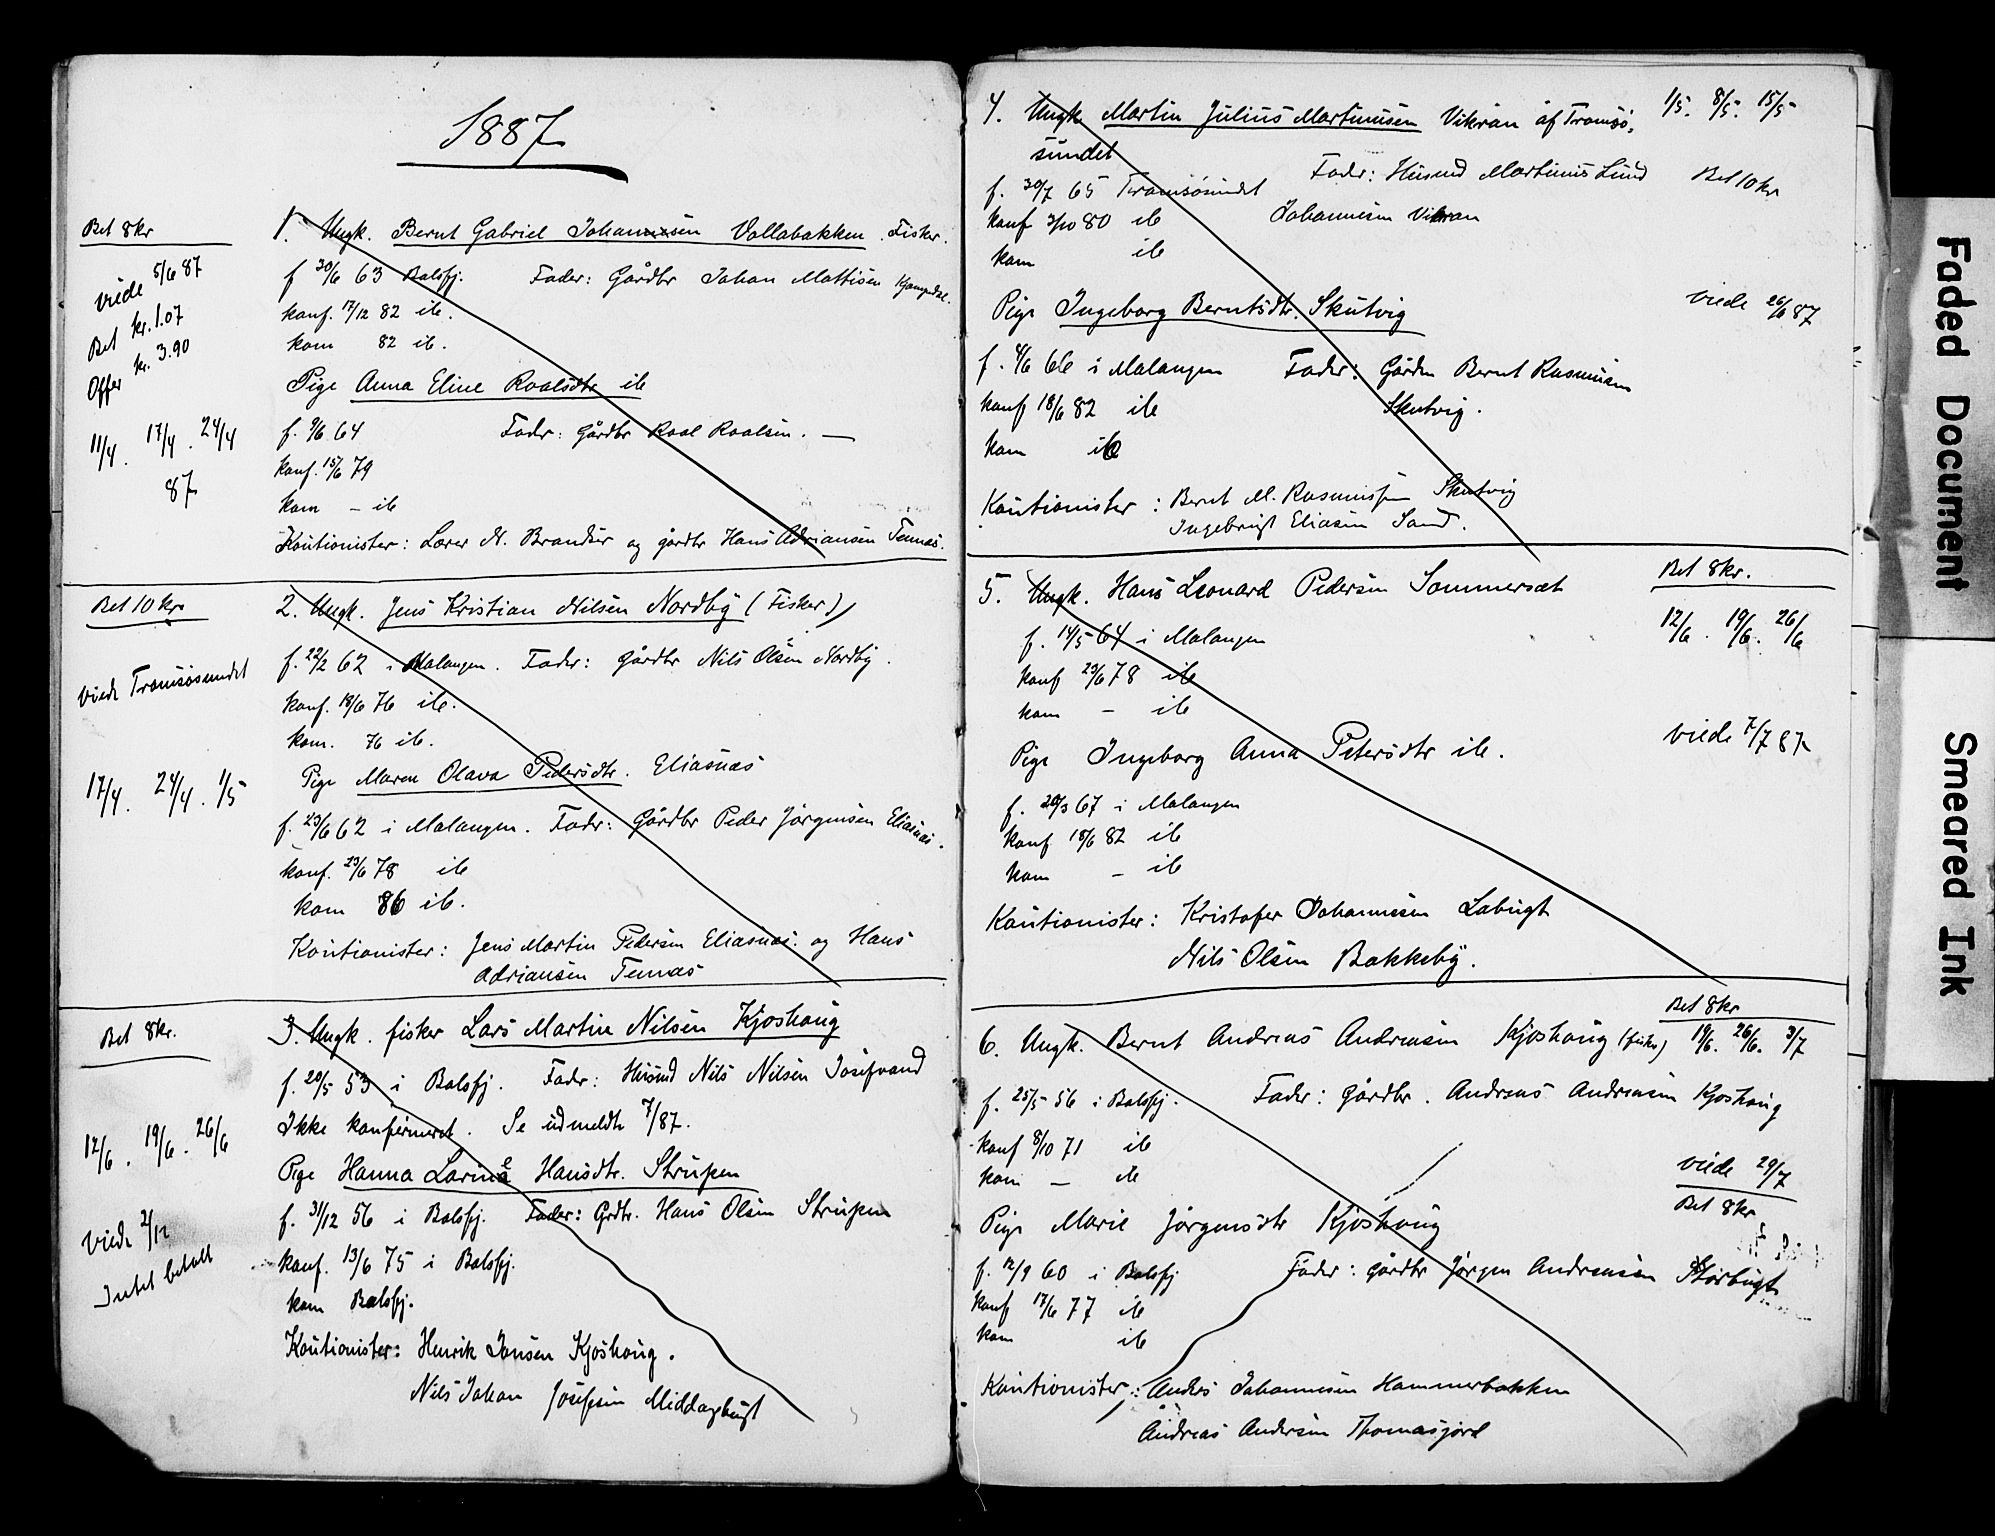 1887
Bet 8 kr
1. Ungk. Bernt Gabriel Johannesen Vollabakken. Fisker.
viede 5/6 87
f 30/6 63 Balsfj. Fader: Gårdbr Johan Mattisen
Bet kr. 1.07
konf. 17/12 82 ib.
Offer kr. 3.90
kom 82 ib.
Pige Anna Eline Roalsdtr ib
11/4. 17/4. 24/4
87
f. 9/6 64 Fader: Gårdbr Roal Roalsen. —
konf. 15/6 79
kom - ib
Koutionister: Lærer N. Brandser og gårdbr Hans Adriansen Tennas.
Bet 10 kr
2. Ungk. Jens Kristian Nilsen Nordby (Fisker)
f. 22/2 62 i Malangen. Fader: Gårdbr Nils Olsen Nordby.
viede Tromsøsundet
konf. 18/6 76 ib.
kom. 76 ib.
Pige Maren Olava Pedersdtr. Eliasnæs
17/4. 24/4. 1/5
f. 23/6 62 i Malangen. Fader: Gårdbr Peder Jørgensen Eliasnæs.
konf. 23/6 78 ib
kom 86 ib.
Koutionister: Jens Martin Pedersen Eliasnæs. og Hans
Adriansen Tennas
Bet 8 kr.
3. Ungk. fisker Lars Martin Nilsen Kjoshaug
f. 20/5 53 i Balsfj. Fader: Husmd Nils Nilsen Josefvand
Ikke konfirmeret. Se udmeldte 7/87.
12/6. 19/6. 26/6
Pige Hanna Larine Hansdtr. Strupen
f. 31/12 56 i Balsfj. Fader: Grdbr. Hans Olsen Strupen
viede 2/12
konf. 13/6 75 i Balsfj.
Intet betalt
kom Balsfj.
Koutionister: Henrik Jonsen Kjoshaug.
Nils Johan Josefsen Middagsbugt
4. Ungk. Martin Julius Martinusen Vikran af Tromsø-
sundet
1/5. 8/5. 15/5
f. 30/7 65 Tromsøsundet Fader: Husmd Martinus Lund
Bet 10 kr
konf 3/10 80 ib Johannesen Vikran
kom ib
Pige Ingeborg Berntsdtr. Skutvig
viede 26/6 87
f. 4/6 66 i Malangen Fader: Gårdm Bernt Rasmussen
konf 18/6 82 ib Skutvig.
kom ib
Koutionister: Bernt M. Rasmussen Skutvig
Ingebrigt Eliasen Sand.
Bet 8 kr.
5. Ungk. Hans Leonard Pedersen Sommersæt
12/6. 19/6. 26/6
f. 14/5 64 i Malangen
konf 23/6 78 ib
kom - ib
viede 7/7 87
Pige Ingeborg Anna Petersdtr ib.
f. 20/3 67 i Malangen
konf 18/6 82 ib
kom - ib
Koutionister: Kristofer Johannesen Labugt
Nils Olsen Bakkeby.
Bet 8 kr
6. Ungk. Bernt Andreas Andreasen Kjoshaug (fisker) 19/6. 26/6. 3/7
f. 25/5 56 i Balsfj. Fader: Gårdbr. Andreas Andreasen Kjoshaug
konf 8/10 71 ib
kom - ib
viede 29/7
Bet 8 kr
Pige Marie Jørgensdtr Kjoshaug
f. 12/9 60 i Balsfj Fader: Gårdbr Jørgen Andreasen Storbugt
konf 17/6 77 ib
kom ib
Koutionister: Andrs Johannesen Hammerbakken
Andreas Andersen Thomasjord
Faded Document
Smeared Ink